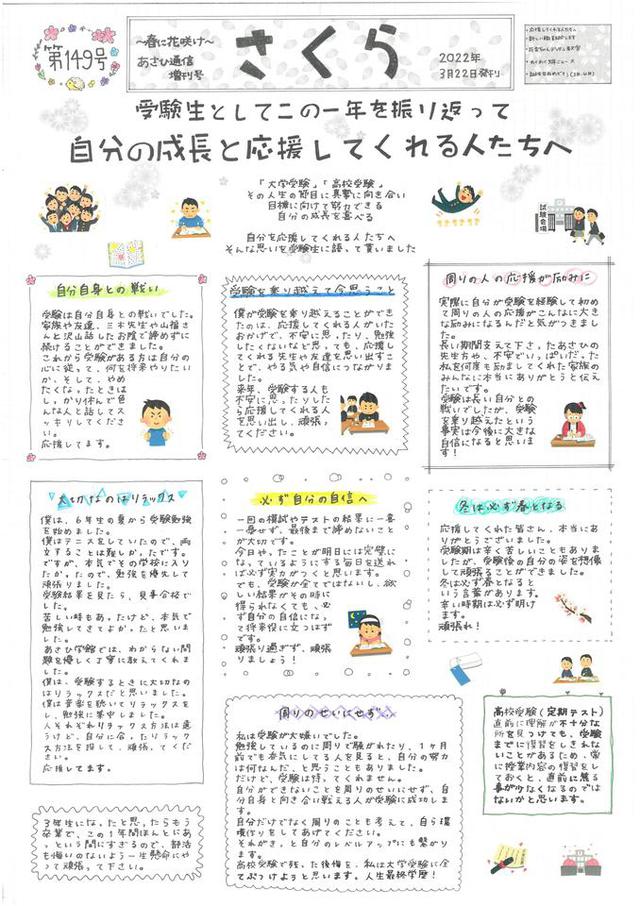 第149号
～春に花咲け～
あさひ通信
増刊号
さくら
2022年
3月22日発刊
受験生としてこの一年を振り返って
自分の成長と応援してくれる人たちへ
「大学受験」「高校受験」
その人生の節目に真摯に向き合い
目標に向けて努力できる
自分の成長を喜べる
自分を応援してくれる人たちへ
そんな思いを受験生に語って貰いました
試験会場
自分自身との戦い
受験は自分自身との戦いでした。
家族や友達、三木先生や山福さ
んと沢山話したお陰で諦めずに
続けることができました。
これから受験がある方は自分の
心に従って、何を将来やりたい
か、そして、やめ
たくなったときは
しっかり休んで色
んな人と話してス
ッキリしてくださ
い。
応援してます。
受験を乗り越えて今思うこと
僕が受験を乗り越えることができ
たのは、応援してくれる人がいた
おかげで、不安に思ったり、勉強
したくないなと思っても、応援し
てくれる先生や友達を思い出すこ
とで、やる気や自信につながりま
した。
来年、受験する人も
不安に思ったりした
ら応援してくれる人
を思い出し、頑張っ
てください。
周りの人の応援が励みに
実際に自分が受験を経験して初め
て周りの人の応援がこんなに大き
な励みになるんだと気がつきまし
た。
長い期間支えて下さったあさひの
先生方や、不安でいっぱいだった
私を何度も励ましてくれた家族の
みんなに本当にありがとうと伝え
たいです。
受験は長い自分との
戦いでしたが、受験
を乗り越えたという
事実は今後に大きな
自信になると思いま
す!
大切なのはリラックス
僕は、6年生の夏から受験勉強
を始めました。
僕はテニスをしていたので、両
立することは難しかったです。
ですが、本気でその学校に入り
たかったので、勉強を優先して
頑張りました。
受験結果を見たら、見事合格で
した。
苦しい時もあったけど、本気で
勉強してきてよかったと思いま
した。
あさひ学館では、わからない問
題を優しく丁寧に教えてくれま
した。
僕は、受験するときに大切なの
はリラックスだと思いました。
僕は音楽を聴いてリラックスを
し、勉強に集中しました。
人それぞれリラックス方法は違
うけど、自分に合ったリラック
ス方法を探して、頑張ってくだ
さい。
応援してます。
必ず自分の自信へ
一回の模試やテストの結果に一喜
一憂せず、最後まで諦めないこと
が大切です。
今日やったことが明日には完璧に
なっているようにする毎日を送れ
ば必ず実力がつくと思います。
でも、受験が全てではないし、欲
しい結果がその時に
得られなくても、必
ず自分の自信になっ
て将来役に立つはず
です。
頑張り過ぎず、頑張
りましょう!
冬は必ず春となる
応援してくれた皆さん、本当にあ
りがとうございました。
受験期は辛く苦しいこともありま
したが、受験後の自分の姿を想像
して頑張ることができました。
冬は必ず春となると
いう言葉があります。
辛い時期は必ず明け
ます。
頑張れ!
周りのせいにせず、
私は受験が大嫌いでした。
勉強しているのに周りで騒がれたり、1ヶ月
前でも本気にしてる人を見ると、自分の努力
は何なんだ、と思うこともありました。
だけど、受験は待ってくれません。
自分ができないことを周りのせいにせず、自
分自身と向き合い戦える人が受験に成功しま
す。
自分だけでなく周りのことも考えて、自ら環
境作りをしてあげてください。
それがきっと自分のレベルアップにも繋がり
ます。
高校受験で残った後悔を、私は大学受験に全
てぶつけようと思います。人生最終学歴!
高校受験（定期テスト）
直前に理解が不十分な
所を見つけても、受験
までに復習をしきれな
いことがあるため、常
に授業内容の復習をし
ておくと、直前に焦る
事が少なくなるのでは
ないかと思います。
3年生になったと思ったらもう
卒業で、この1年間ほんとにあ
っという間にすぎるので、部活
も悔いのないよう一生懸命にや
って頑張って下さい。